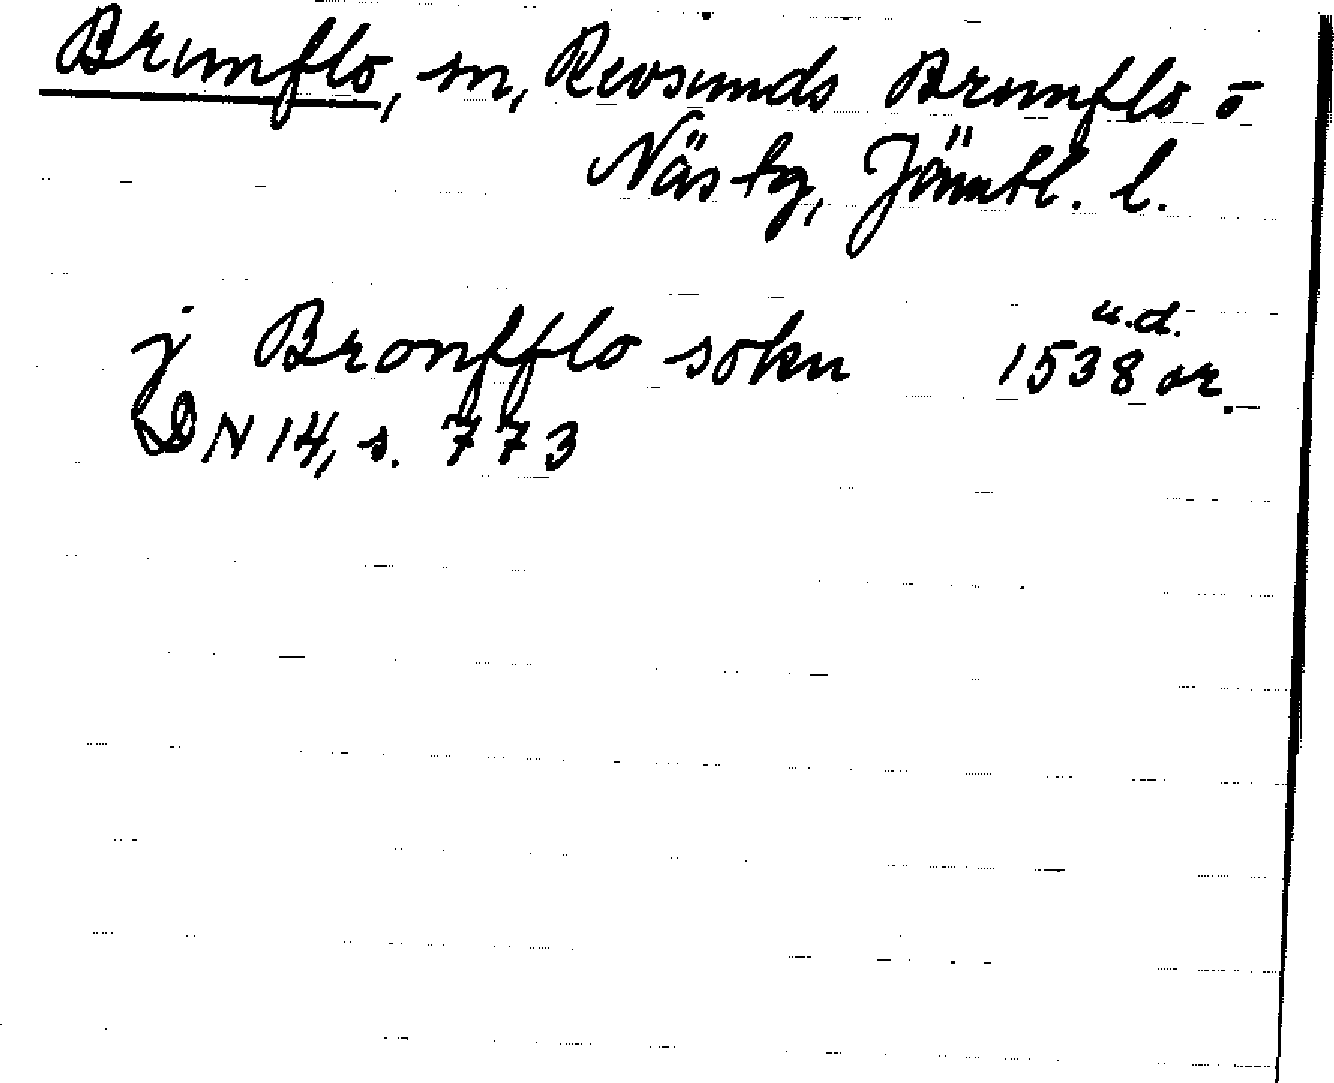 Brunflo, sn, Revsunds Brunflo o
Näs tg, Jämtl. l.
u.d.
j Bronfflo sokn 1538 or.
DN 14, s. 773